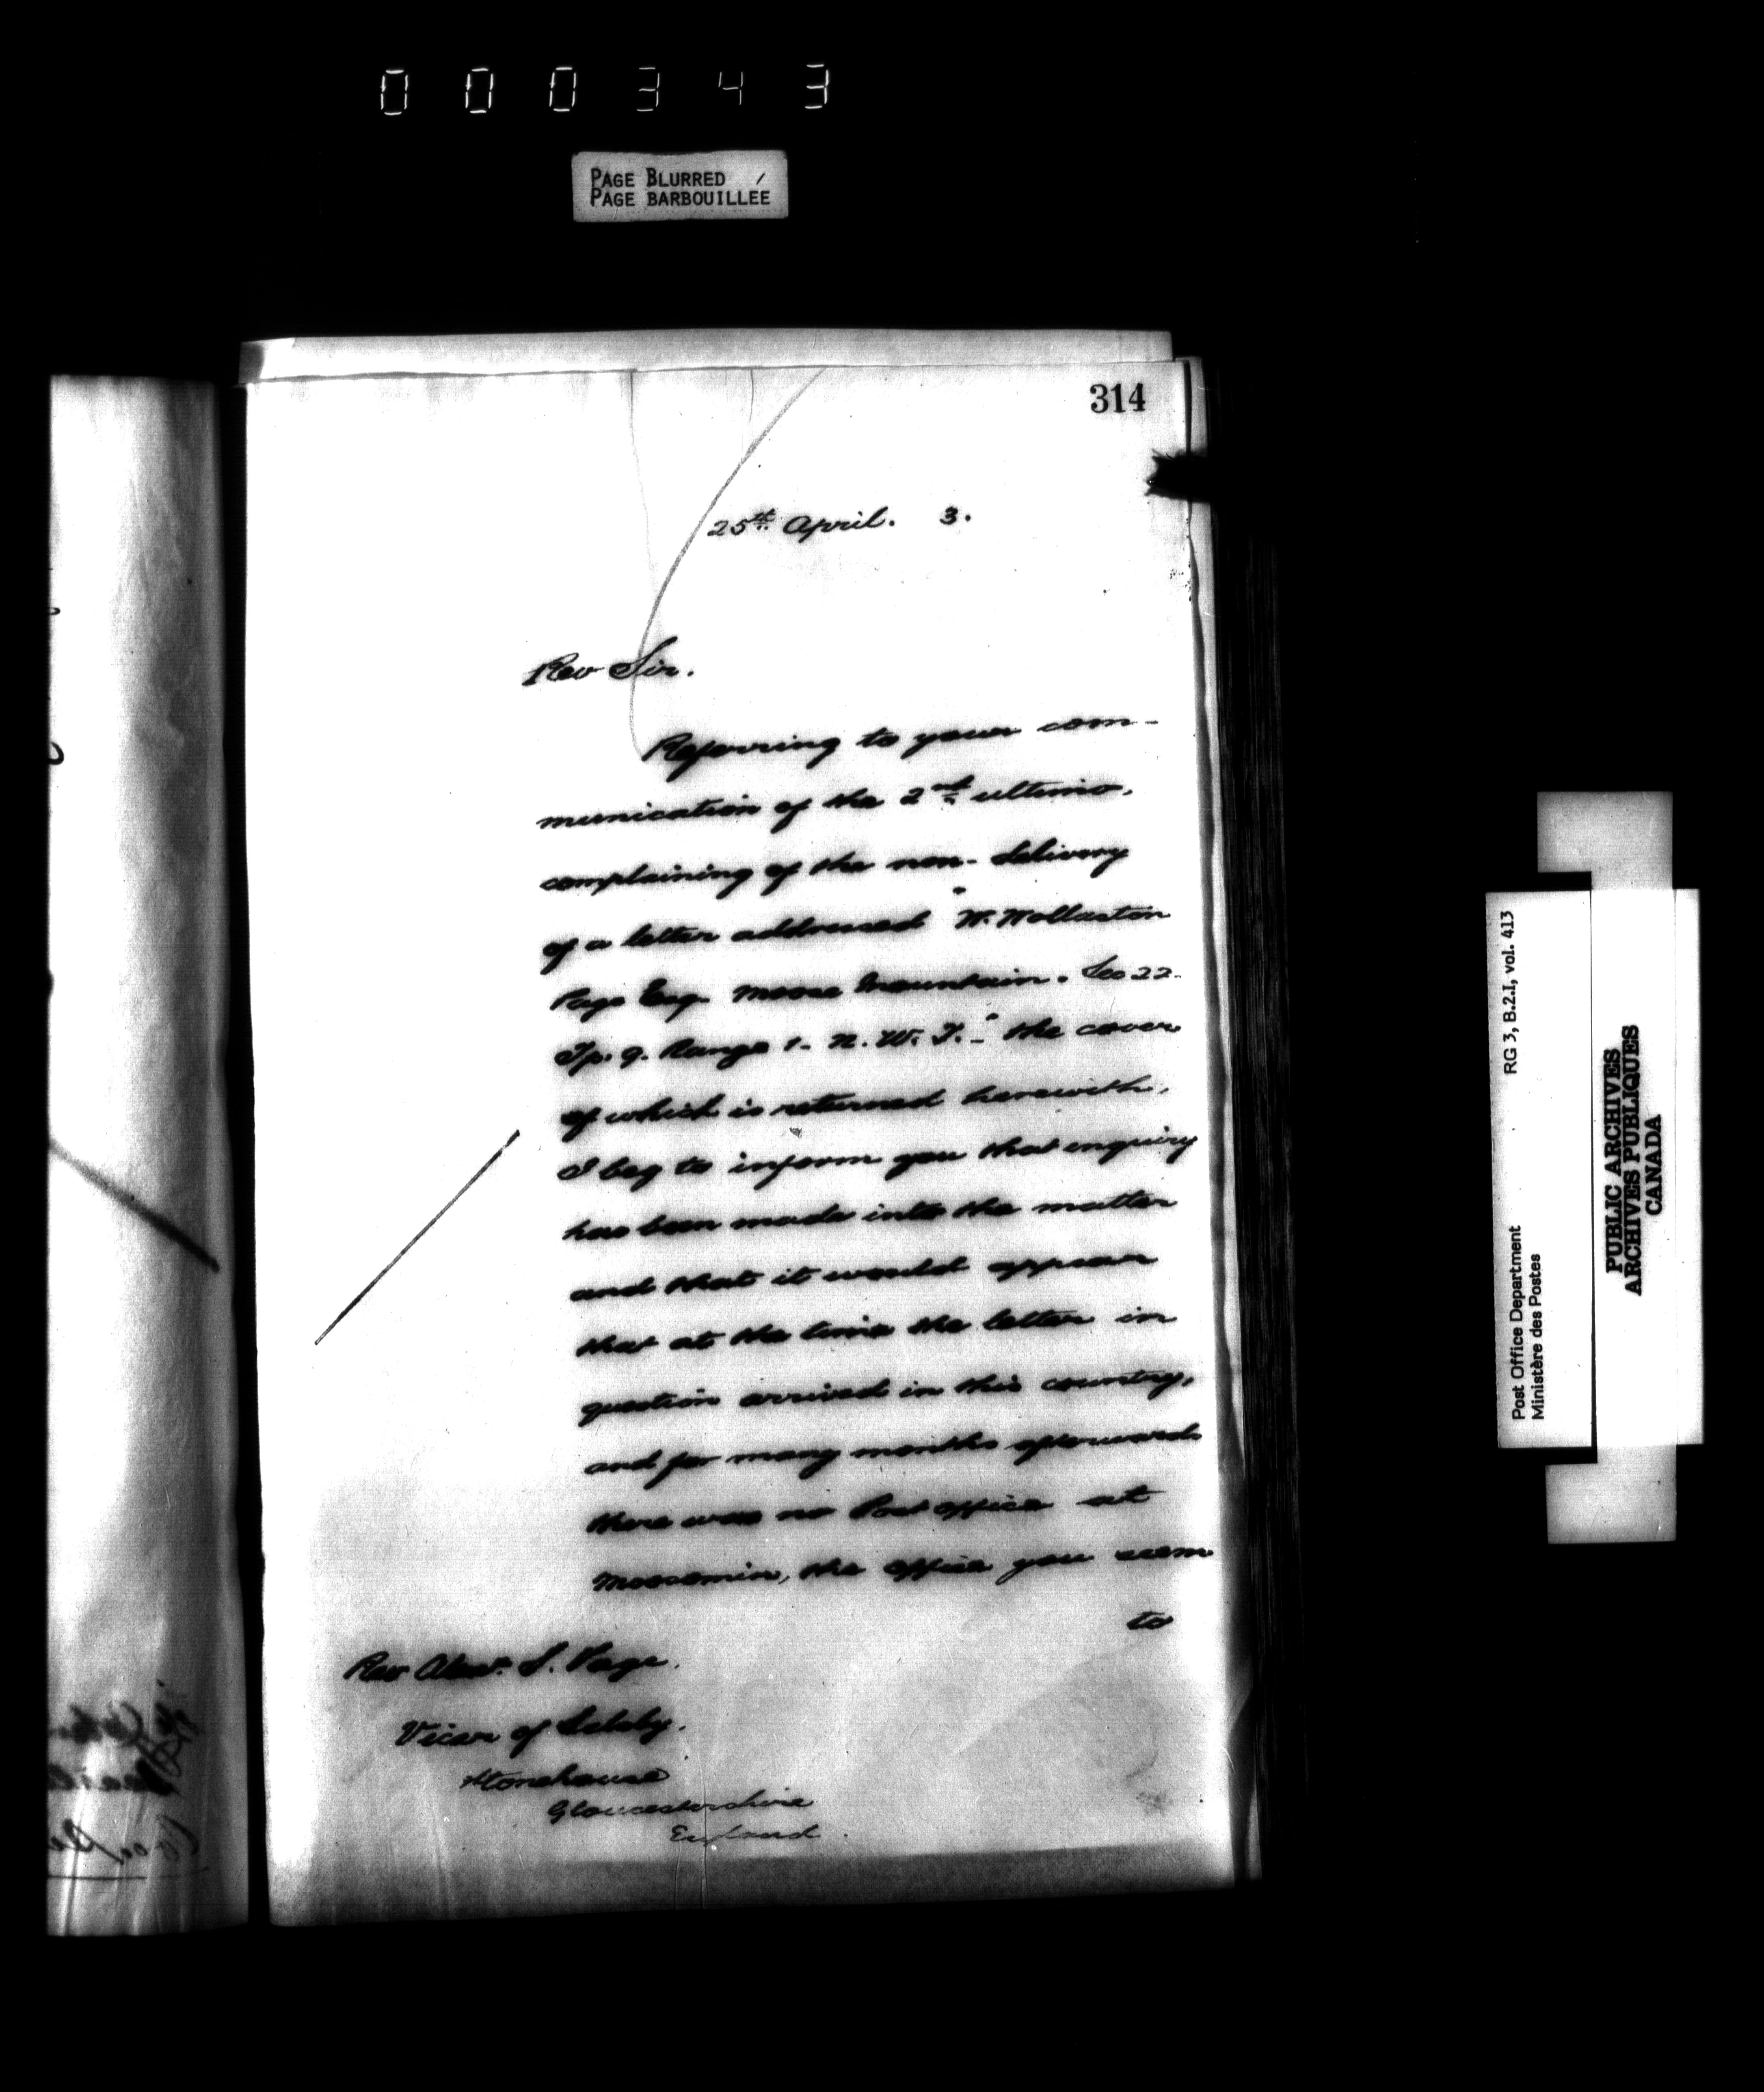 000343
PAGE BLURRED
PAGE BARBOUILLÉE
314
25th April. 3.
Rev Sir.
Referring to your com-
munication of the 2nd ultimo,
complaining of the non-delivery
of a letter addressed "W. Wollaston
Page Esq. Moose Mountain. Sec 22.
Tp. 9. Range 1- N. W. T." the cover
of which is returned herewith,
I beg to inform you that enquiry
has been made into the matter
and that it would appear
that at the time the letter in
question arrived in this country,
and for many months afterwards
there was no Post office at
Moosomin, the office you seem
to
Rev Alexr. S. Page.
Vicar of
Stonehouse
Gloucestershire
England
Post Office Department
Ministère des Postes
RG 3, B.2.I, vol. 413
PUBLIC ARCHIVES
ARCHIVES PUBLIQUES
CANADA